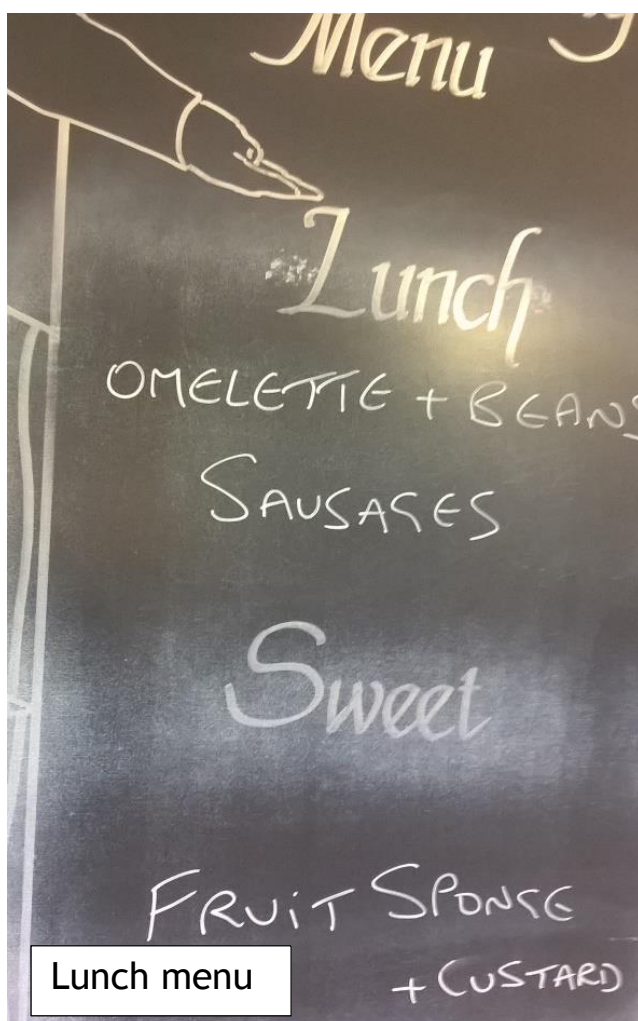 Menu
Lunch
OMELETTE + BEANS
SAUSAGES
Sweet
FRUiT SPONGE
+ CUSTARD
Lunch menu